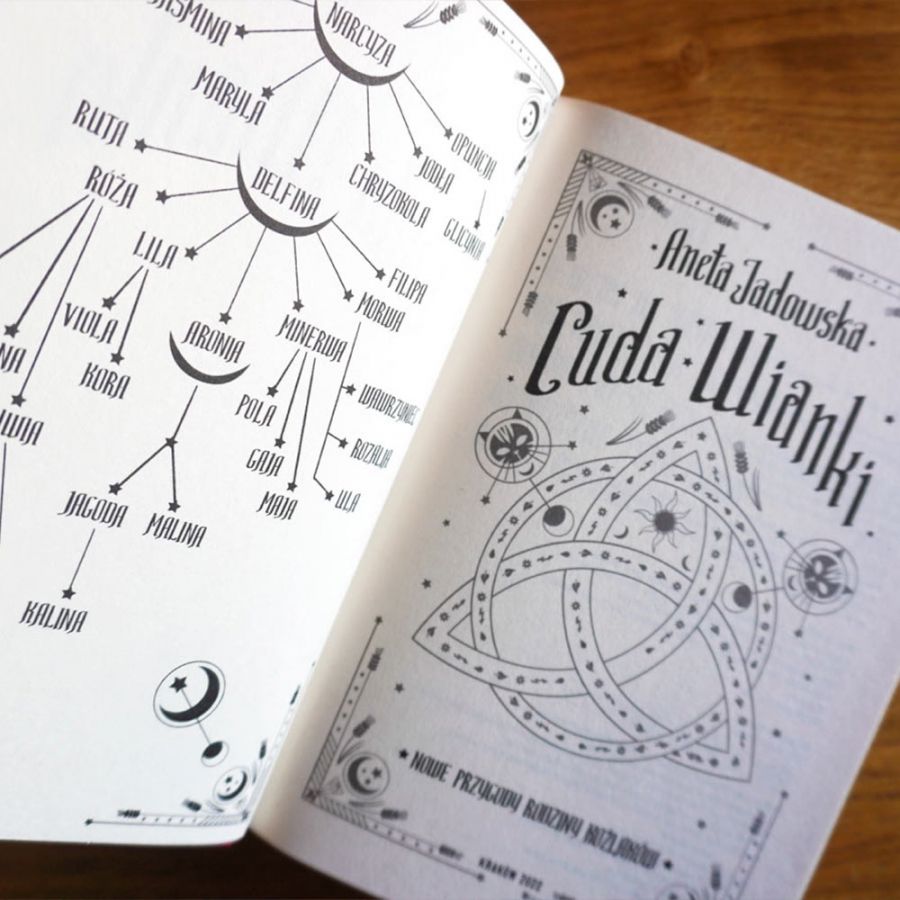 NARCYZA
MARYLA
OPUNCJA
JODŁA
CHRYZOKOLA
GLICYNIA
RUTA
DELFINA
RÓŻA
LILA
FILIPA
MORWA
VIOLA
ARONIA
MINERWA
KORA
POLA
WAWRZYNIEC
GAJA
ROZALIA
MAJA
ULA
JAGODA
MALINA
KALINA
Aneta Jadowska
Cuda Wianki
NOWE PRZYGODY RODZINY KOŹLAKÓW
KRAKÓW 2022